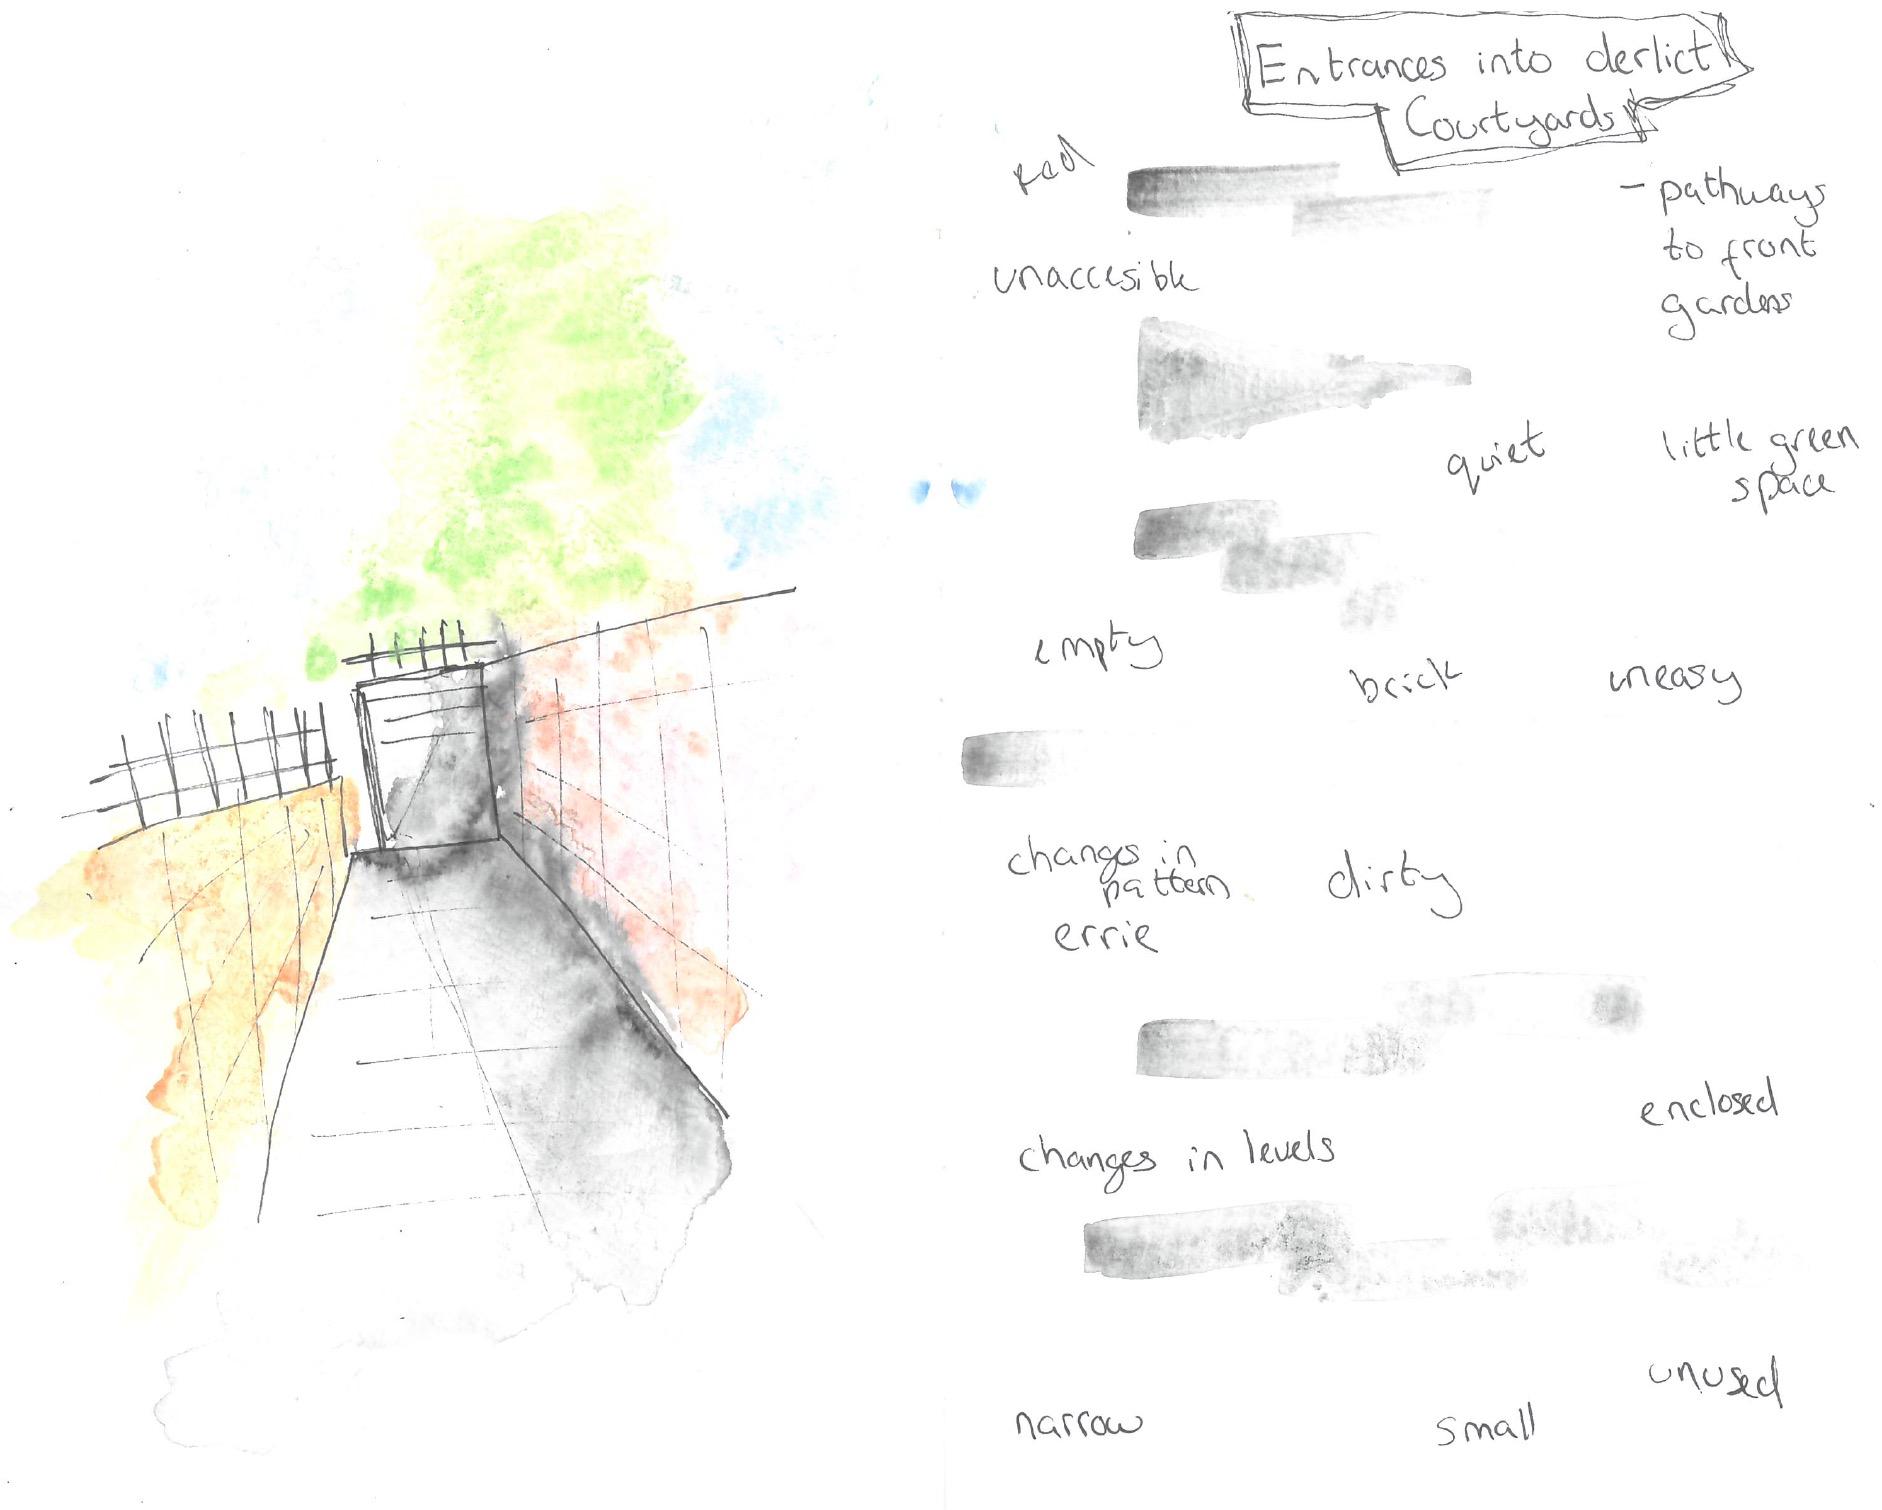 Entrances into derlict
Courtyards
red
- pathways
to front
gardens
unaccesible
quiet
little green
space
empty
brick
uneasy
changes in
pattern
dirty
errie
enclosed
changes in levels
unused
narrow
small